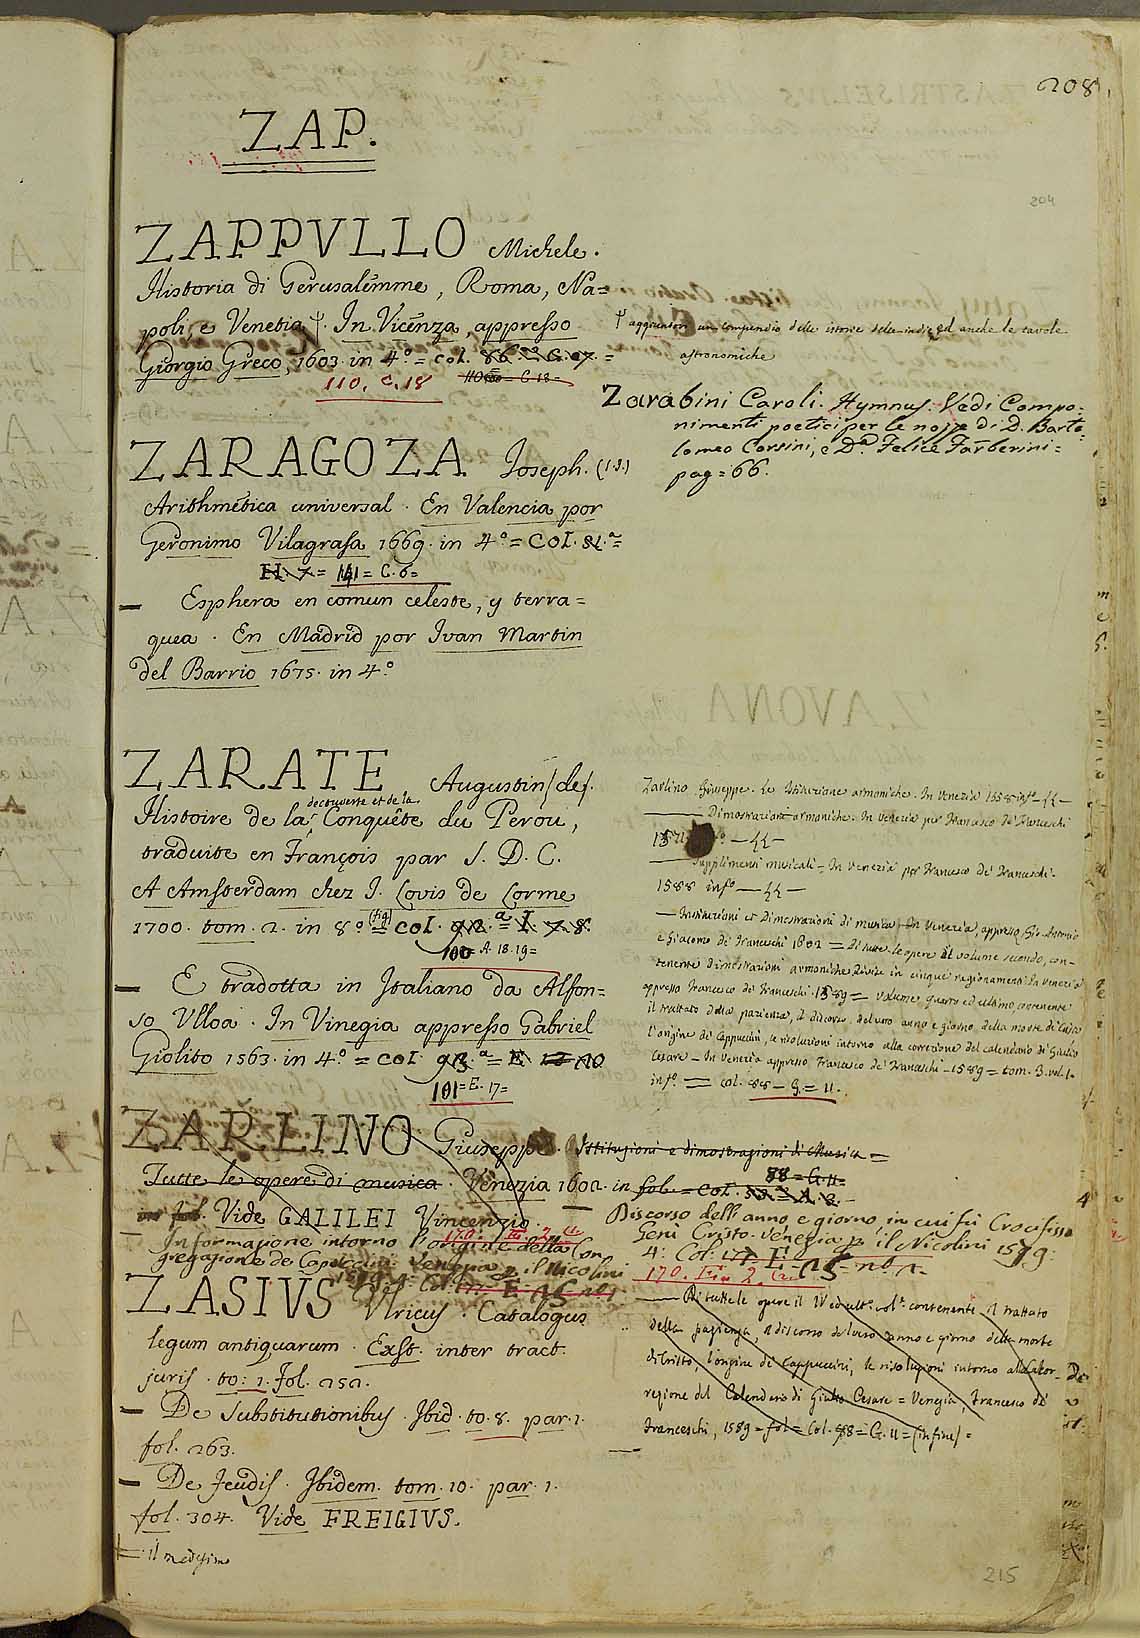 208.
204
ZAP.
ZAPPVLLO Michele.
Historia di Gerusalemme, Roma, Na=
poli, e Venetia †. In Vicenza, appresso
Giorgio Greco, 1603. in 4.º = col. 86.
110. C. 18
110 = C. 18 =
† aggiuntovi un compendio delle istorie delle indie ed anche le tavole
astronomiche
Zarabini Caroli. Hymnus. Vedi Compo=
nimenti poetici per le nozze di D. Barto=
lomeo Corsini, e D.ª Felice Barberini =
pag = 66.
ZARAGOZA Joseph. (I.S.)
Arithmetica universal. En Valencia por
Geronimo Vilagrasa 1669. in 4.º = Col.
H. 7. = 141 = C. 6 =
— Esphera en comun celeste, y terra=
quea. En Madrid por Ivan Martin
del Barrio 1675. in 4.º
ZARATE Augustin (de).
decouverte et de la
Histoire de la Conquête du Perou,
traduite en François par S. D. C.
A Amsterdam chez J. Lovis de Lorme
1700. tom. 2. in 8.º (fig) = col. 92.ª = I. 7. 8.
100 = A. 18. 19 =
— E tradotta in Italiano da Alfon=
so Vlloa. In Vinegia appresso Gabriel
Giolito 1563. in 4.º = col. 93.ª = E.
101 = E. 17 =
Zarlino Giuseppe. Le Istituzione armoniche. In Venezia 1558 inf.º
— Dimostrazioni armoniche. In Venezia per Francesco de' Franceschi
1571
— Supplimenti musicali = In Venezia per Francesco de' Franceschi.
1588 inf.º
— Instituzioni et Dimostrazioni di musica In Venezia, appresso Gio Antonio
e Giacomo de' Franceschi 1602 = Di tutte le opere il volume secondo, con-
tenente Dimostrazioni armoniche Divise in cinque ragionamenti In Venezia
appresso Francesco de' Franceschi 1589 = volume quarto ed ultimo contenente
il trattato della pazienza, il discorso del vero anno e giorno della morte di Cristo
l'origine de' Cappuccini, le risoluzioni intorno alla correzione del calendario di Giulio
Cesare — In Venezia appresso Francesco de' Franceschi — 1589 = tom. 3. vol. 1.
inf.º = col. 88 — G. = 11.
ZARLINO Giuseppe. Istituzioni e dimostrazioni di Musica =
Tutte le opere di musica. Venezia 1602. in fol. = Col.
88 = G. 11 =
Vide GALILEI Vincenzio.
— Informazione intorno l'origine della Con
gregazione de Capuccini. Venezia p. il Nicolini
Discorso delli anno, e giorno, in cui fù Crocifisso
Gesù Cristo. Venezia p. il Nicolini 1579.
4.º Col. 177. E.
ZASIVS Vlricus. Catalogus
legum antiquarum. Exst. inter tract.
juris. to: 1. fol. 252.
— De Substitutionibus. Ibid. to. 8. par. 1.
fol. 263.
— De Feudis. Ibidem. tom. 10. par. 1.
fol. 304. Vide FREIGIVS.
— il medesimo
— Di tutte le opere il IV ed ult.º vol.e contenente il trattato
della pazienza, il discorso del vero anno e giorno della morte
di Cristo, l'origine de' Cappuccini, le risoluzioni intorno alla cor-
rezione del Calendario di Giulio Cesare = Venezia, Francesco de'
Franceschi, 1589 = fol = Col. 88 = G. 11 = (in fine) =
215